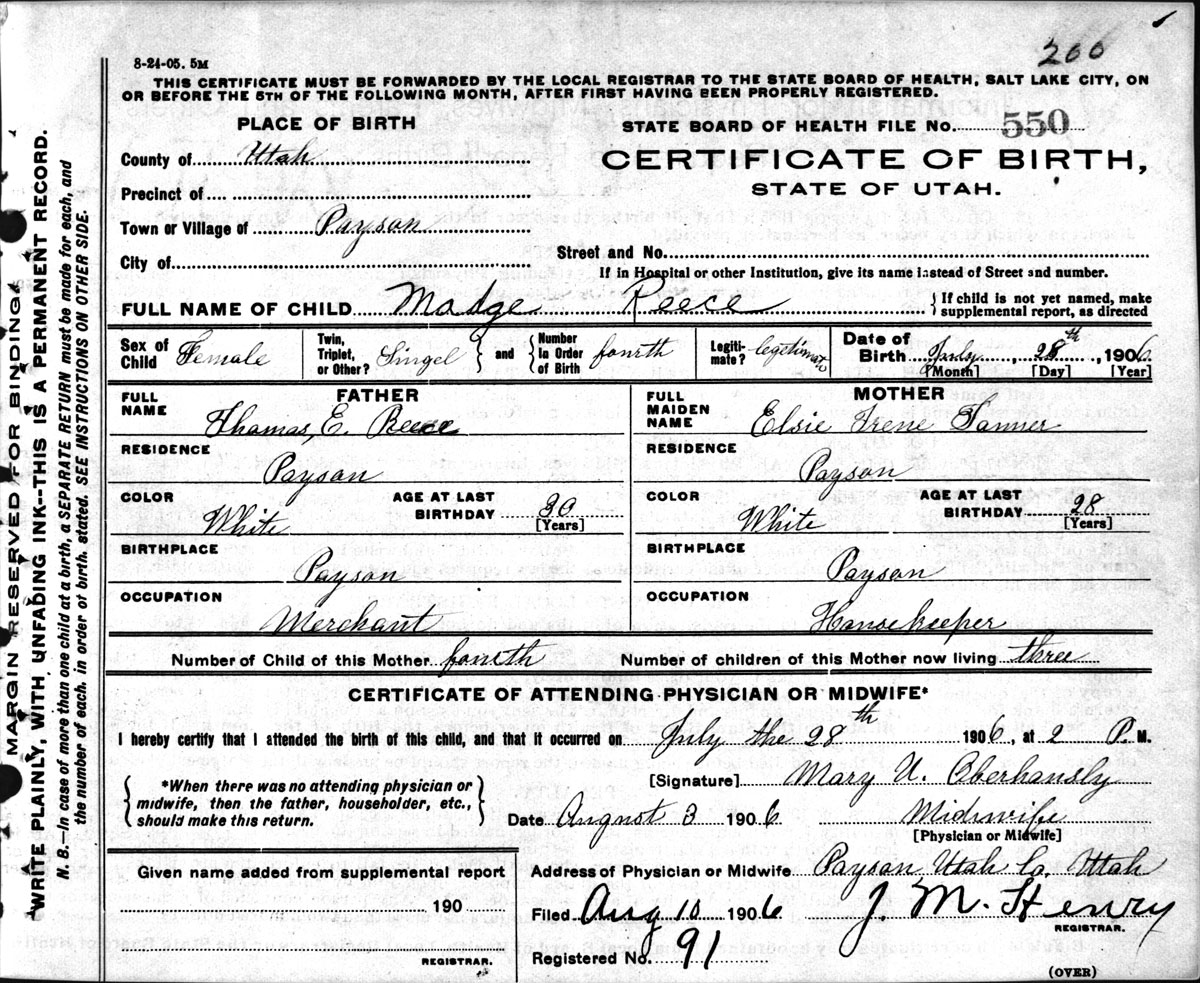 200
8-24-05. 5M
THIS CERTIFICATE MUST BE FORWARDED BY THE LOCAL REGISTRAR TO THE STATE BOARD OF HEALTH, SALT LAKE CITY, ON
OR BEFORE THE 5TH OF THE FOLLOWING MONTH, AFTER FIRST HAVING BEEN PROPERLY REGISTERED.
PLACE OF BIRTH
STATE BOARD OF HEALTH FILE No. 550
County of Utah
CERTIFICATE OF BIRTH,
STATE OF UTAH.
Precinct of
Town or Village of Payson
City of
Street and No.
If in Hospital or other Institution, give its name instead of Street and number.
FULL NAME OF CHILD Madge Reece
{If child is not yet named, make
supplemental report, as directed
Sex of Child Female
Twin, Triplet, or Other? Singel
and
Number In Order of Birth fourth
Legiti-mate? legitimate
Date of Birth July 28th, 1906
[Month] [Day] [Year]
FATHER
FULL NAME
Thomas, E. Reece
RESIDENCE
Payson
COLOR
White
AGE AT LAST BIRTHDAY 30
[Years]
BIRTHPLACE
Payson
OCCUPATION
Merchant
MOTHER
FULL MAIDEN NAME
Elsie Irene Tanner
RESIDENCE
Payson
COLOR
White
AGE AT LAST BIRTHDAY 28
[Years]
BIRTHPLACE
Payson
OCCUPATION
Housekeeper
Number of Child of this Mother fourth
Number of children of this Mother now living three
CERTIFICATE OF ATTENDING PHYSICIAN OR MIDWIFE*
I hereby certify that I attended the birth of this child, and that it occurred on July the 28th 1906, at 2 P. M.
*When there was no attending physician or
midwife, then the father, householder, etc.,
should make this return.
[Signature] Mary U. Oberhansly
Date August 3 1906
Midwife
[Physician or Midwife]
Given name added from supplemental report
190
REGISTRAR.
Address of Physician or Midwife Payson Utah Co. Utah
Filed Aug 10 1906 J. M. Henry
REGISTRAR.
Registered No. 91
(OVER)
MARGIN RESERVED FOR BINDING
WRITE PLAINLY, WITH UNFADING INK--THIS IS A PERMANENT RECORD.
N. B.—In case of more than one child at a birth, a SEPARATE RETURN must be made for each, and
the number of each, in order of birth, stated. SEE INSTRUCTIONS ON OTHER SIDE.